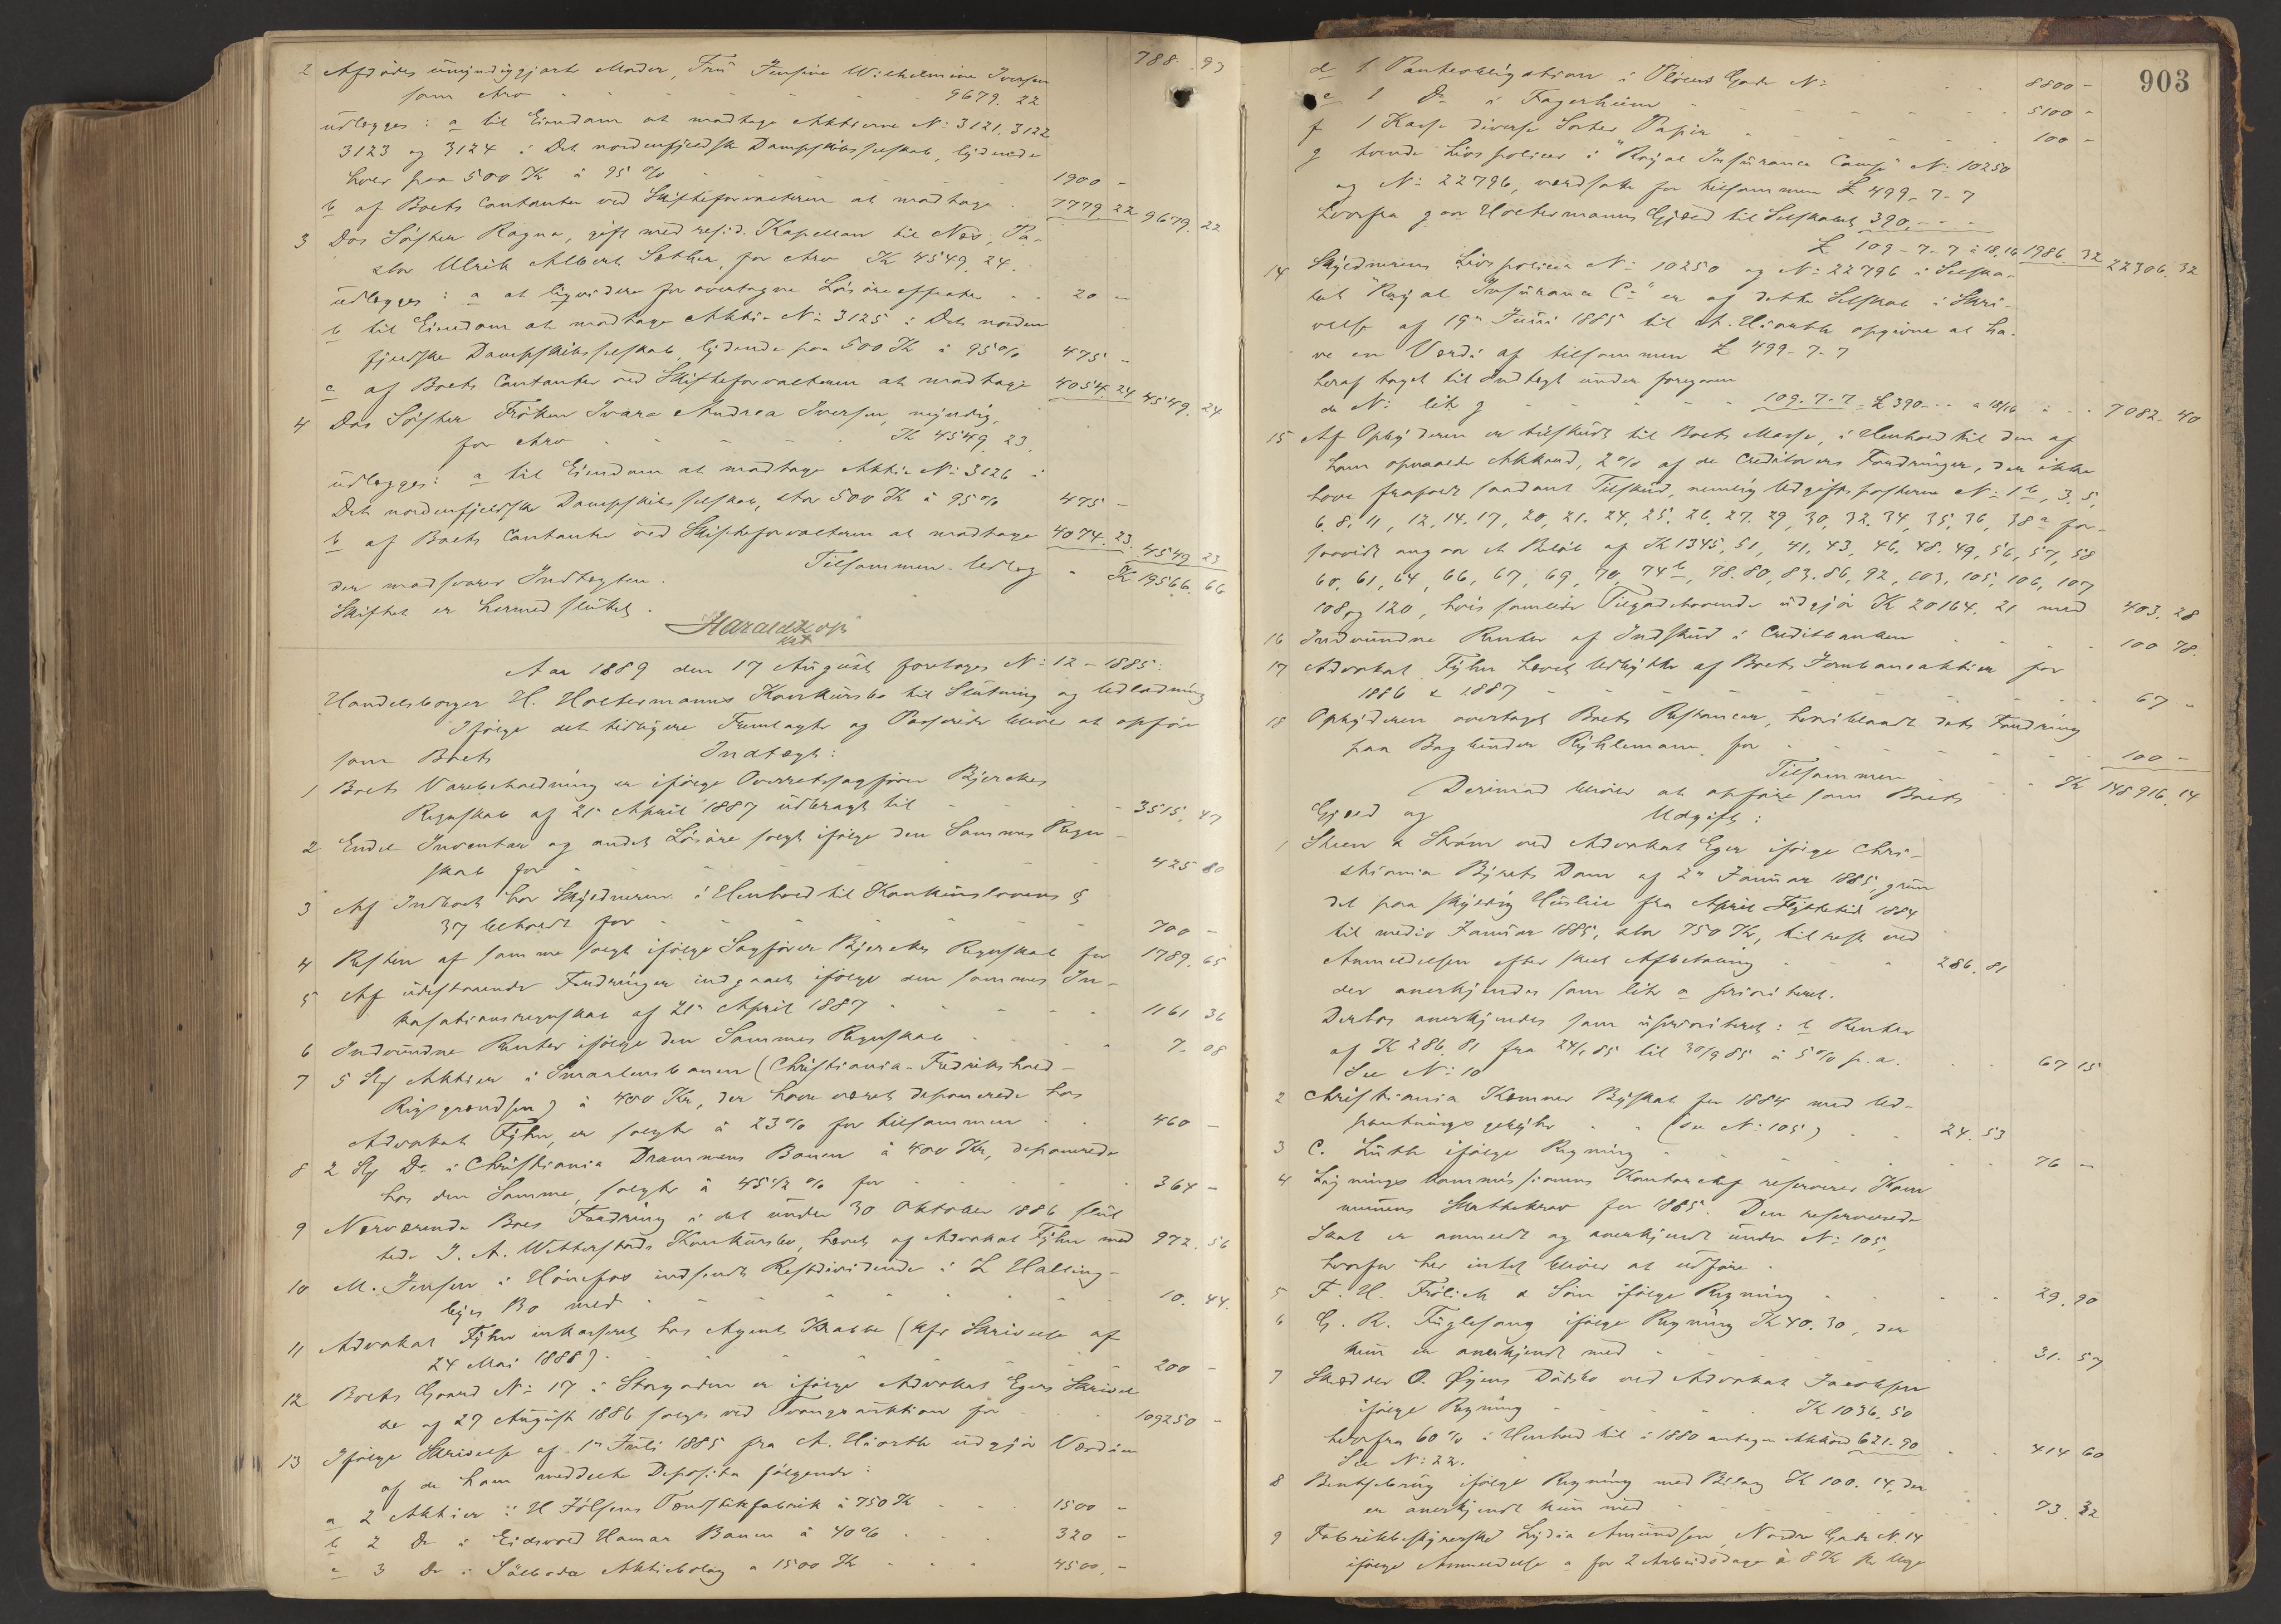 788. 93
2 Afdødes umyndiggjorte Moder, Fru Jensine Wilhelmine Iversen
som Arv 9679. 22
udlægges: a til Eiendom at modtage Aktierne No 3121. 3122
3123 og 3124 i Det nordenfjeldske Dampskibsselskab, lydende
hver paa 500 Kr à 95 % 1900 -
b af Boets Contanter ved Skifteforvalteren at modtage 7779 22 9679. 22
3 Dos Søster Ragna, gift med resid. Kapellan til Næs, Pa-
stor Ulrik Albert Sether, for Arv Kr 4549. 24.
udlægges: a at liqvidere for overtagne Løsøreeffecter 20 -
b til Eiendom at modtage Aktie No 3125 i Det norden
fjeldske Dampskibsselskab, lydende paa 500 Kr à 95 % 475 -
c af Boets Contanter ved Skifteforvalteren at modtage 4054. 24 4549. 24
4 Dos Søster Frøken Ivara Andrea Iversen, myndig,
for Arv Kr 4549. 23.
udlægges: a til Eiendom at modtage Aktie No 3126 i
Det nordenfjeldske Dampskibsselskab, stor 500 Kr à 95 % 475 -
b af Boets Contanter ved Skifteforvalteren at modtage 4074. 23. 4549 23
Tilsammen Udlæg Kr 19566. 66
der modsvarer Indtægten.
Skiftet er hermed sluttet.
Harald
Aar 1889 den 17 August foretoges No 12 - 1885:
Handelsborger H. Holtermanns Konkursbo til Slutning og Udlodning
Ifølge det tidligere Fremlagte og Passerede bliver at opføre
som Boets Indtægt:
1 Boets Varebeholdning er ifølge Overretssagfører Bjerckes
Regnskab af 21 April 1887 udbragt til 3515, 47
2 Endel Inventar og andet Løsøre solgt ifølge den Sammes Regn-
skab for 425 80
3 Af Indboet har Skyldneren i Henhold til Konkurslovens §
37 beholdt for 700 -
4 Resten af samme solgt ifølge Sagfører Bjerckes Regnskab for 1789. 65
5 Af udestaaende Fordringer indgaaet ifølge den sammes In-
kasationsregnskab af 21 April 1887 1161 36
6 Indvundne Renter ifølge den Sammes Regnskab 7. 08
7 5 Stk Aktier i Smaalensbanen (Christiania-Fredrikshald-
Rigsgrændsen) à 400 Kr, der have været deponerede hos
Advokat Fyhn, er solgte à 23 % for tilsammen 460 -
8 2 Stk Do i Christiania Drammens Banen à 400 Kr, deponerede
hos den Samme, solgte à 45 1/2 % for 364 -
9 Nærværende Boes Fordring i det under 30 Oktober 1886 slut
tede J. A. Wetterstads Konkursbo, hævet af Advokat Fyhn med 972. 56
10 M. Jensen i Hønefos indsendt Restdividende i L Halling-
bys Bo med 10. 44.
11 Advokat Fyhn inkasseret hos Agent Krabbe (kfr Skrivelse af
24 Mai 1888) 200 -
12 Boets Gaard No 17 i Storgaden er ifølge Advokat Egers Skrivel
se af 27 August 1886 solgt ved Tvangsauktion for 109250 -
13 Ifølge Skrivelse af 1 Juli 1885 fra A. Hiorth udgjør Værdien
af de ham meddelte Deposita følgende:
a 2 Aktier i H Jølsens Tændstikfabrik à 750 Kr 1500 -
b 2 Do i Eidsvold Hamar Banen à 40 % 320 -
c 3 Do i Sälboda Aktiebolag a 1500 Kr 4500, -
903
d 1 Panteobligation i Pløens Gade No 8800 -
e 1 Do i Fagerheim 5100 -
f 1 Kasse diverse Sorter Papir 100 -
g tvende Livspolicer i "Royal Insurance Comp" No 10250
og No 22796, værdsatte for tilsammen £ 499-7-7
hvorfra gaar Holtermanns Gjæld til Selskabet 390. - -
£ 109-7-7 à 18,16 1986. 32 22306. 32
14 Skyldnerens Livspolicer No 10250 og No 22796 i Selska-
bet "Royal Insurance Co" er af dette Selskab i Skri-
velse af 19 Juni 1885 til A. Hiorth opgivne at ha-
ve en Værdi af tilsammen £ 499-7-7
heraf taget til Indtægt under foregaaen
de No lit g 109-7-7 £ 390 - - a 18/16 7082. 40
15 Af Opbyderen er tilskudt til Boets Masse, i Henhold til den af
ham opnaaede Akkord, 2 % af de Creditorers Fordringer, der ikke
have frafaldt saadant Tilskud, nemlig Udgiftsposterne No 1 b, 3. 5,
6. 8. 11, 12. 14. 17, 20, 21. 24, 25. 26. 27. 29, 30, 32. 34, 35, 36, 38 a for-
saavidt angaar et Beløb af Kr 1345, 51, 41, 43, 46. 48. 49, 56, 57, 58
60, 61, 64, 66, 67, 69, 70, 74 b, 78. 80, 83. 86, 92, 103, 105, 106, 107
108 og 120, hvis samlede Tilgodehavende udgjør Kr 20164. 21 med 403. 28
16 Indvundne Renter af Indskud i Creditbanken 100 78.
17 Advokat Fyhn hævet Udbytte af Boets Jernbaneaktier for
1886 & 1887 67 -
18 Opbyderen overtaget Boets Restancer, heriblandt dets Fordring
paa Bogbinder Kyhlemann for 100 -
Tilsammen Kr 148916. 14
Derimod bliver at opføre som Boets
Gjæld og Udgift:
1 Steen & Strøm ved Advokat Eger ifølge Chri-
stiania Byrets Dom af 2 Januar 1885, grun
det paa skyldig Husleie fra April Flyttetid 1884
til medio Januar 1885, stor 750 Kr, til rest ved
Anmeldelsen efter skeet Afbetaling 286. 81
der anerkjendes som litr a prioriteret.
Derhos anerkjendes som uprioriteret: b Renter
af Kr 286. 81 fra 24/1 85 til 30/9 85 à 5 % p. a. 67 15
See No 10
2 Christiania Kæmner Byskat for 1884 med Ud-
pantningsgebyhr (see No 105) 24. 53
3 C. Luth ifølge Regning 76 -
4 Ligningskommissionens Kontorchef reserverer Kom
munens Skattekrav for 1885. Den reserverede
Skat er anmeldt og anerkjendt under No 105,
hvorfor her intet bliver at udføre.
5 F. H. Frölich & Søn ifølge Regning 29. 90
6 G. R. Fuglesang ifølge Regning Kr 40. 30, der
kun er anerkjendt med 31. 57
7 Skrædder O. Øyens Dødsbo ved Advokat Jacobsen
ifølge Regning Kr 1036. 50
hvorfra 60 % i Henhold til i 1880 antagen Akkord 621. 90 414 60
See No 22.
8 Bentsebrug ifølge Regning med Bilag Kr 100. 14, der
er anerkjendt kun med 73. 32
9 Fabrikbestyrerske Lydia Amundsen, Nordre Gade No 14
ifølge Anmeldelse a for 2 Arbeidsdage à 8 Kr pr Uge